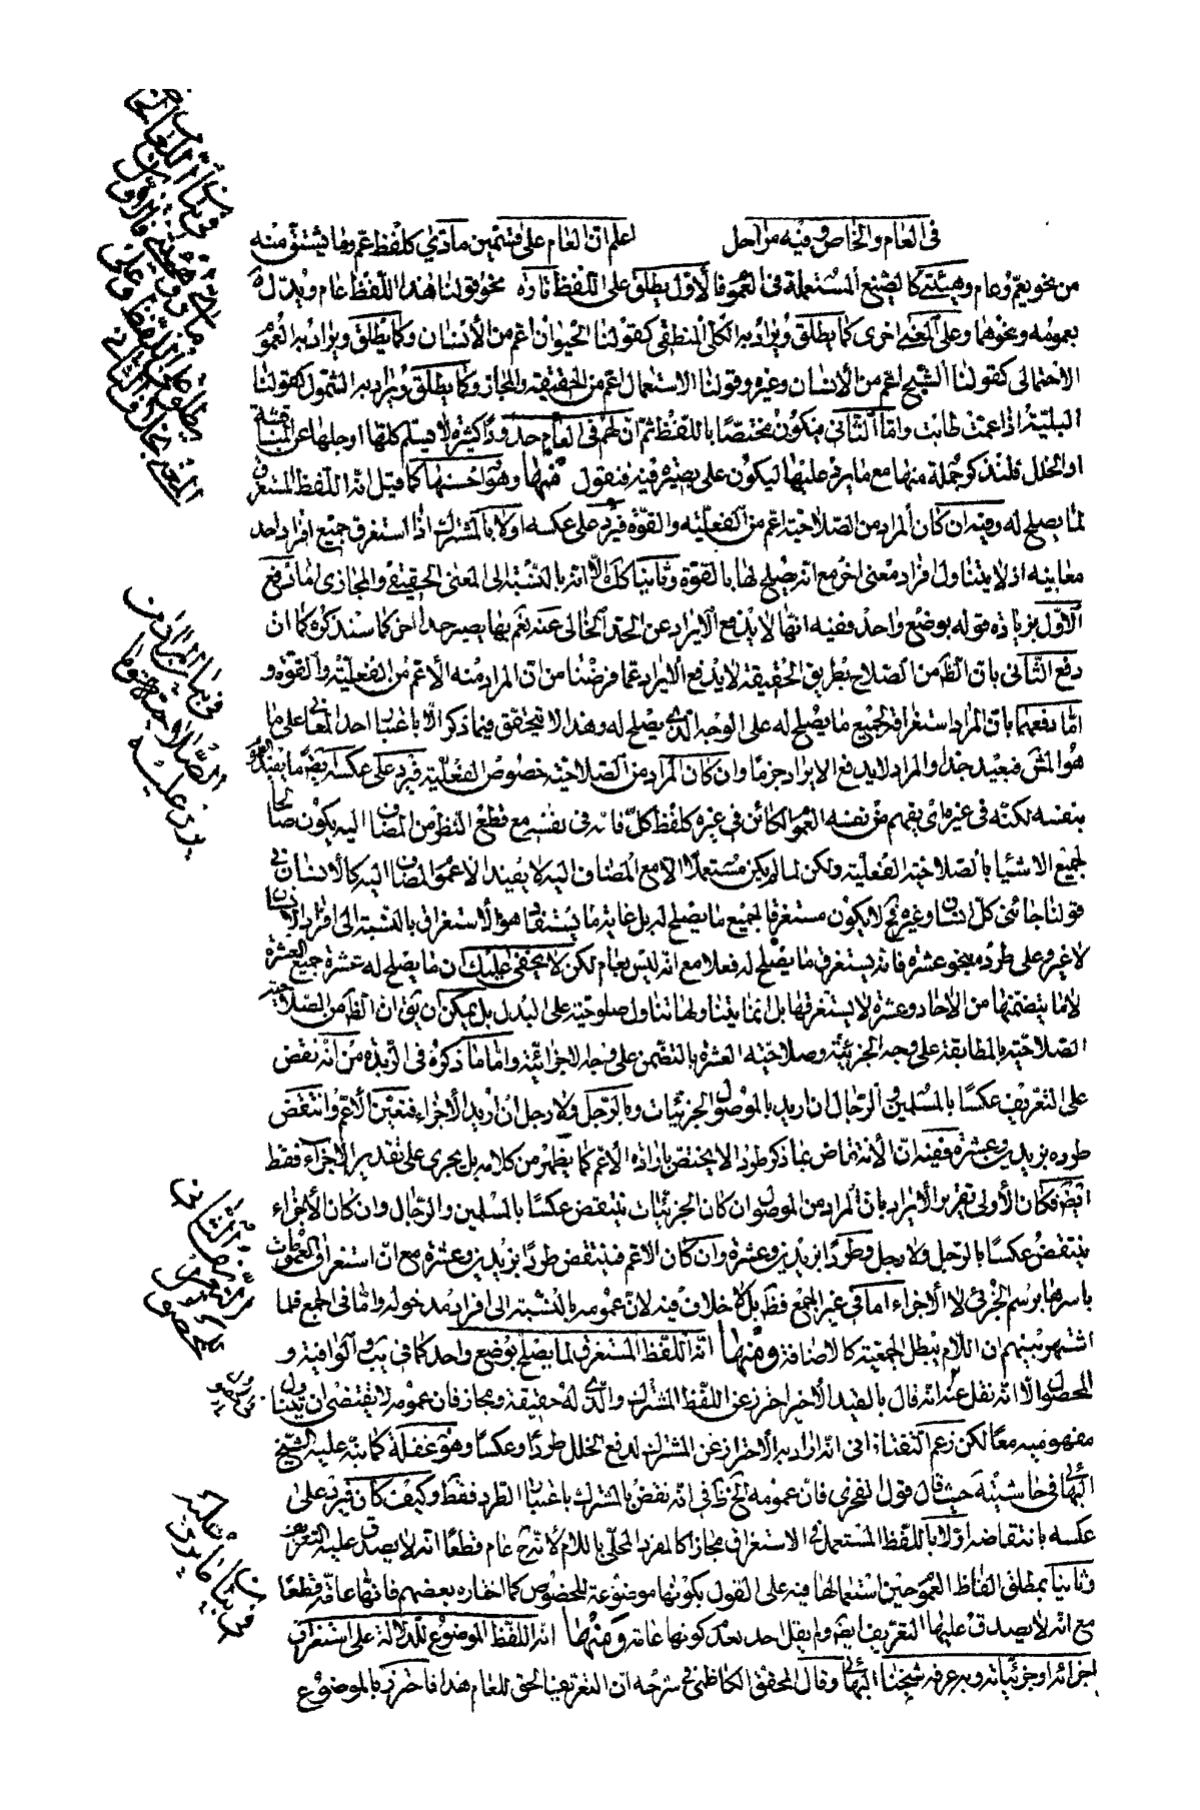 في العام والخاص وفيه مراحل اعلم ان العام على قسمين مادّي كلفظ عمّ وما يشتق منه
من نحو يعمّ وعام وهيئتي كالصّيغ المستعملة في العموم فالأوّل يطلق على اللّفظ تارة نحو قولنا هذا اللّفظ عام ويدلّ له
بعمومه ونحوهما وعلى المعنى اخرى كما يطلق ويراد به الكلّي المنطقي كقولنا الحيوان اعم من الأنسان وكما يطلق ويراد به العموم
الاحتمالى كقولنا الشّبح اعم من الأنسان وغيره وقولنا الاستعمال اعم من الحقيقة والمجاز وكما يطلق ويراد به الشّمول كقولنا
البليّة اذا عمّت طابت وامّا الثّاني فيكون مختصّا باللّفظ ثمّ ان لهم في العام حدودًا كثيرة لا يسلم كلّها او جلها عن المناقشة
او الخلل فلنذكر جملة منها مع ما يرد عليها ليكون على بصيرة فيه فنقول منها وهو احسنها كما قيل انّه اللّفظ المستغرق
لما يصلح له وفيه ان كان المراد من الصّلاحيّة اعم من الفعليّة والقوّة فيرد على عكسه اولا بالمشترك اذا استغرق جميع افراد احد
معانيه اذ لا يتناول افراد معنى اخر مع انّه يصلح لها بالقوة وثانيا كك لانّه بالنّسبة الى المعنى الحقيقي والمجازى امّا دفع
الأوّل بزيادة قوله بوضع واحد ففيه انّها لا يدفع الأيراد عن الحدّ الخالى عنه نعم بها يصير حدا اخر كما سنذكره كما ان
دفع الثّاني بان الظّ من الصّلاح بطريق الحقيقة لا يدفع الأيراد عمّا فرضنا من ان المراد منه الأعم من الفعليّة والقوة و
امّا دفعهما بان المراد استغراقه لجميع ما يصلح له على الوجه الّذي يصلح له وهذا لا يتحقق فيما ذكر الّا باعتبار احد المعاني على ما
هو الحقّ فبعيد جدا والمراد لا يدفع الايراد جزما وان كان المراد من الصّلاحيّة خصوص الفعليّة فيرد على عكسه ايضا ما يفيد العموم
بنفسه لكنّه في غيره اى يفهم من نفسه العموم الكائن في غيره كلفظ كلّ فانه في نفسه مع قطع النّظر من المضاف اليه يكون صالحا
لجميع الاشياء بالصّلاحيّة الفعليّة ولكن لما لم يكن مستعملا الا مع المضاف اليه لا يفيد الا عموم المضاف اليه كالأنسان في
قولنا جائنى كلّ انسان وغيره فح لا يكون مستغرقا لجميع ما يصلح له بل غاية ما يستفاد هو الأستغراق بالنّسبة الى افراد الانسان
لا غير وعلى طرده نحو عشرة فانّه يستغرق ما يصلح له فعلا مع انّه ليس بعام لكن لا يخفى عليك ان ما يصلح له عشرة جميع العشرة
لا ما يتضمّنها من الأحاد وعشرة لا يستغرقها بل انما يتناولها تناول صلوحيّة على البدل بل يمكن ان يق ان الظّ من الصّلاحيّة
الصّلاحيّة بالمطابقة على وجه الجزئيّة وصلاحيّة العشرة بالتضمّن على وجه الأجزائيّة وامّا ما ذكره في الزّبدة من انّه نقض
على التّعريف عكسًا بالمسلمين والرّجال ان اريد بالموصول الجزئيات وبالرّجل ولا رجل ان اريد الأجزاء فتعيّن الأعم وانتقض
طرده بزيدين وعشرة ففيه انّ الأنتقاض بما ذكر طردًا لا يختص بارادة الأعم كما يظهر من كلامه بل يجرى على تقدير الأجزاء فقط
ايضا فكان الأولى تقرير الأيراد بان المراد من الموصول ان كان الجزئيّات ينتقض عكسًا بالمسلمين والرّجال وان كان الأجزاء
ينتقض عكسًا بالرّجل ولا رجل وطردًا بزيدين وعشرة وان كان الاعم فينتقض طردًا بزيدين وعشرة مع انّ استغراق العمومات
باسرها برسم الجزئي لا الأجزاء اما في غير الجمع فظ بل لا خلاف فيه لانّ عمومه بالنّسبة الى افراد مدخوله وامّا في الجمع فلما
اشتهر بينهم ان اللّام يبطل الجمعيّة كالاضافة ومنها انّه اللّفظ المستغرق لما يصلح بوضع واحد كما في يب والوافية و
المحصول الّا انّه نقل عنه انّه قال بالقيد الأخير احترز عن اللّفظ المشترك والّذي له حقيقة ومجاز فان عمومه لا يقتضى ان يتناول
مفهوميه معًا لكن زعم التّفتازاني انّه اراد به الأحتراز عن المشترك لدفع الخلل طردًا وعكسًا وهو غفلة كما نبّه عليه الشّيخ
البهائي في حاشيته حيث قال قول الفخري فان عمومه الخ ظ في انّه نقض بالمشترك باعتبار الطّرد فقط وكيف كان فيرد على
عكسه بانتقاضه اوّلا باللّفظ المستعمل في الاستغراق مجازا كالمفرد المحلّى باللّام لانّه ح عام قطعًا انّه لا يصدق عليه التعريف
وثانيا بمطلق الفاظ العموم حين استعمالها فيه على القول بكونها موضوعة للخصوص كما اختاره بعضهم فانّها عامّة قطعًا
مع انّه لا يصدق عليها التّعريف ايضا ولم يقل احد بعدم كونها عامة ومنها انّه اللّفظ الموضوع للدّلالة على استغراق
اجزائه او جزئيّاته وبه عرفه شيخنا البهائي وقال المحقّق الكاظمي في شرحه ان التّعريف الحق للعام هذا فاحترز بالموضوع
في بيان المراد من
الصّلاحيّة وما
يرد عليه